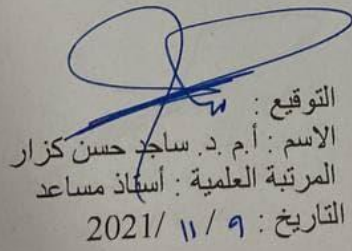 التوقيع :
الاسم : أ.م .د. ساجد حسن كزار
المرتبة العلمية : أستاذ مساعد
التاريخ : ٩ / ١١ /2021